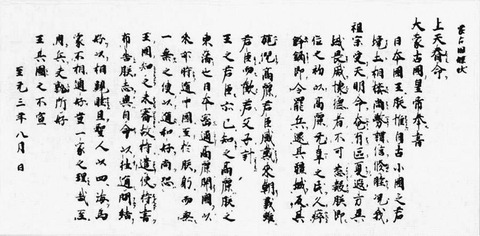 蒙古國牒状
上天眷命
大蒙古國皇帝奉書
日本國王朕惟自古小國之君
境土相接尚務講信修睦況我
祖宗受天明命奄有區夏遐方異
域畏威懷德者不可悉數朕即
位之初以高麗无辜之民久瘁
鋒鏑即令罷兵還其疆域反其
旄倪高麗君臣感戴來朝義雖
君臣而歡若父子計
王之君臣亦已知之高麗朕之
東藩也日本密邇高麗開國以
來亦時通中國至於朕躬而無
一乘之使以通和好尚恐
王國知之未審故特遣使持書
布告朕志冀自今以往通問結
好以相親睦且聖人以四海為
家不相通好豈一家之理哉至
用兵夫孰所好
王其圖之不宣
至元三年八月日